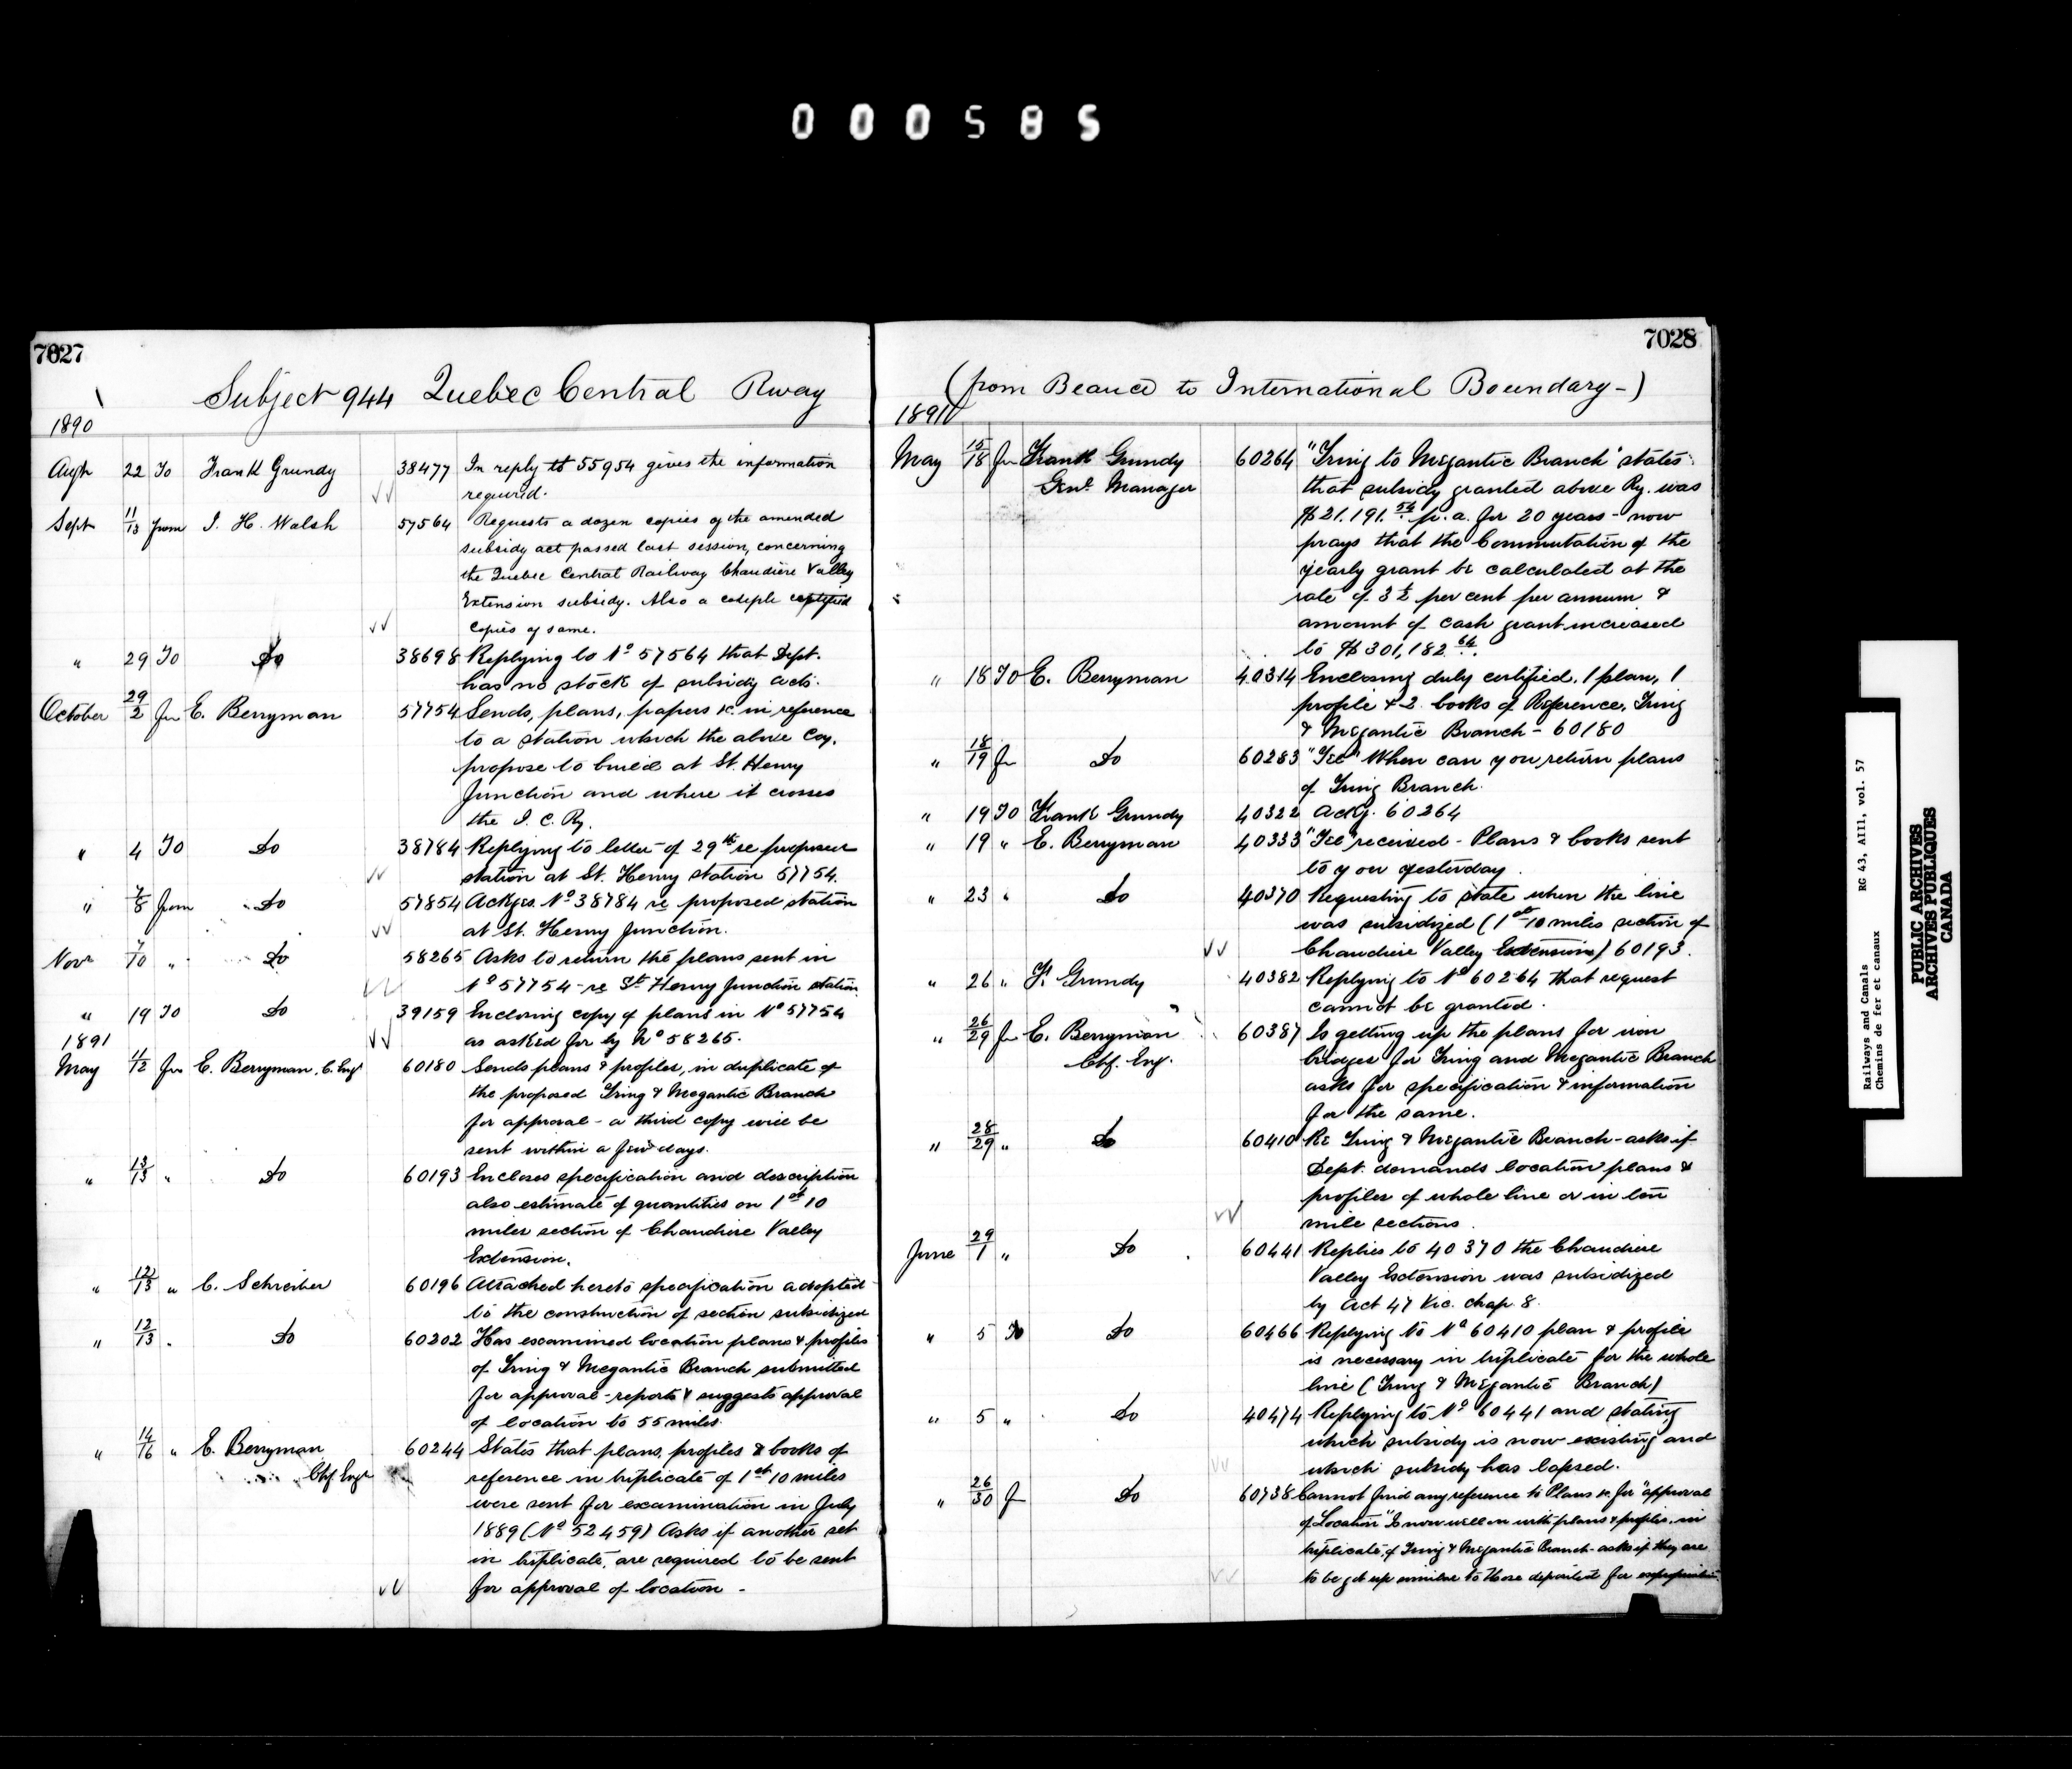 000585
7027
Subject 944 Quebec Central Rway
1890
Augt 22 To Frank Grundy 38477 In reply to 55954 gives the information
required.
Sept 11/13 from J. H. Walsh 57564 Requests a dozen copies of the amended
subsidy act passed last session, concerning
the Quebec Central Railway Chaudière Valley
Extension subsidy. Also a couple certified
copies of same.
" 29 To Do 38698 Replying to No 57564 that Dept.
has no stock of subsidy acts.
October 29/2 Fm E. Berryman 57754 Sends, plans, papers &c. in reference
to a station which the above Coy.
propose to build at St. Henry
Junction and where it crosses
the I. C. Ry.
" 4 To Do 38784 Replying to letter of 29th re proposed
station at St. Henry station 57754.
" 7/8 from Do 57854 Ackges No 38784 re proposed station
at St. Henry Junction.
Novr 7/10 " Do 58265 Asks to return the plans sent in
No 57754 - re St Henry Junction station
" 19 To Do 39159 Enclosing copy of plans in No 57754
as asked for by No 58265.
1891
May 11/12 Fm E. Berryman, C. Engr 60180 Sends plans & profiles, in duplicate of
the proposed Tring & Megantic Branch
for approval - a third copy will be
sent within a few days.
" 13/13 " Do 60193 Encloses specification and description
also estimate of quantities on 1st 10
miles section of Chaudiere Valley
Extension.
" 12/13 " C. Schreiber 60196 Attached hereto specification adopted
to the construction of section subsidized
" 12/13 " Do 60202 Has examined location plans & profiles
of Tring & Megantic Branch submitted
for approval - reports & suggests approval
of location to 55 miles.
" 14/16 " E. Berryman 60244 States that plans, profiles & books of
Chf Engr reference in triplicate of 1st 10 miles
were sent for examination in July
1889 (No 52459) Asks if another set
in triplicate, are required to be sent
for approval of location -
7028
(from Beauce to International Boundary -)
1891
May 15/18 Fm Frank Grundy 60264 "Tring to Megantic Branch" states
Genl Manager that subsidy granted above Ry. was
$21.191.54 p.a. for 20 years - now
prays that the Commutation of the
yearly grant be calculated at the
rate of 3½ per cent per annum &
amount of cash grant increased
to $301,182.64.
" 18 To E. Berryman 40314 Enclosing duly certified, 1 plan, 1
profile & 2 books of Reference, Tring
& Megantic Branch - 60180
" 18/19 Fm Do 60283 "Tel" When can you return plans
of Tring Branch.
" 19 To Frank Grundy 40322 Ackg. 60264
" 19 " E. Berryman 40333 "Tel" received - Plans & books sent
to you yesterday.
" 23 " Do 40370 Requesting to state when the line
was subsidized (1st 10 miles section of
Chaudiere Valley Extension) 60193.
" 26 " F. Grundy 40382 Replying to No 60264 that request
cannot be granted.
" 26/29 Fm E. Berryman 60387 Is getting up the plans for iron
Chf. Eng. bridges for Tring and Megantic Branch
asks for specification & information
for the same.
" 28/29 " Do 60410 Re Tring & Megantic Branch - asks if
Dept. demands location plans &
profiles of whole line or in ten
mile sections.
June 29/1 " Do 60441 Replies to 40370 the Chaudiere
Valley Extension was subsidized
by Act 47 Vic. chap 8.
" 5 To Do 60466 Replying to No 60410 plan & profile
is necessary in triplicate for the whole
line (Tring & Megantic Branch)
" 5 " Do 40474 Replying to No 60441 and stating
which subsidy is now existing and
which subsidy has lapsed.
" 26/30 F Do 60738 Cannot find any reference to Plans &c. for "approval
of Location" Is now well on with plans & profiles, in
triplicate, of Tring & Megantic Branch - asks if they are
to be got up similar to those deposited for expropriation
Railways and Canals RG 43, AIII, vol. 57
Chemins de fer et canaux
PUBLIC ARCHIVES
ARCHIVES PUBLIQUES
CANADA